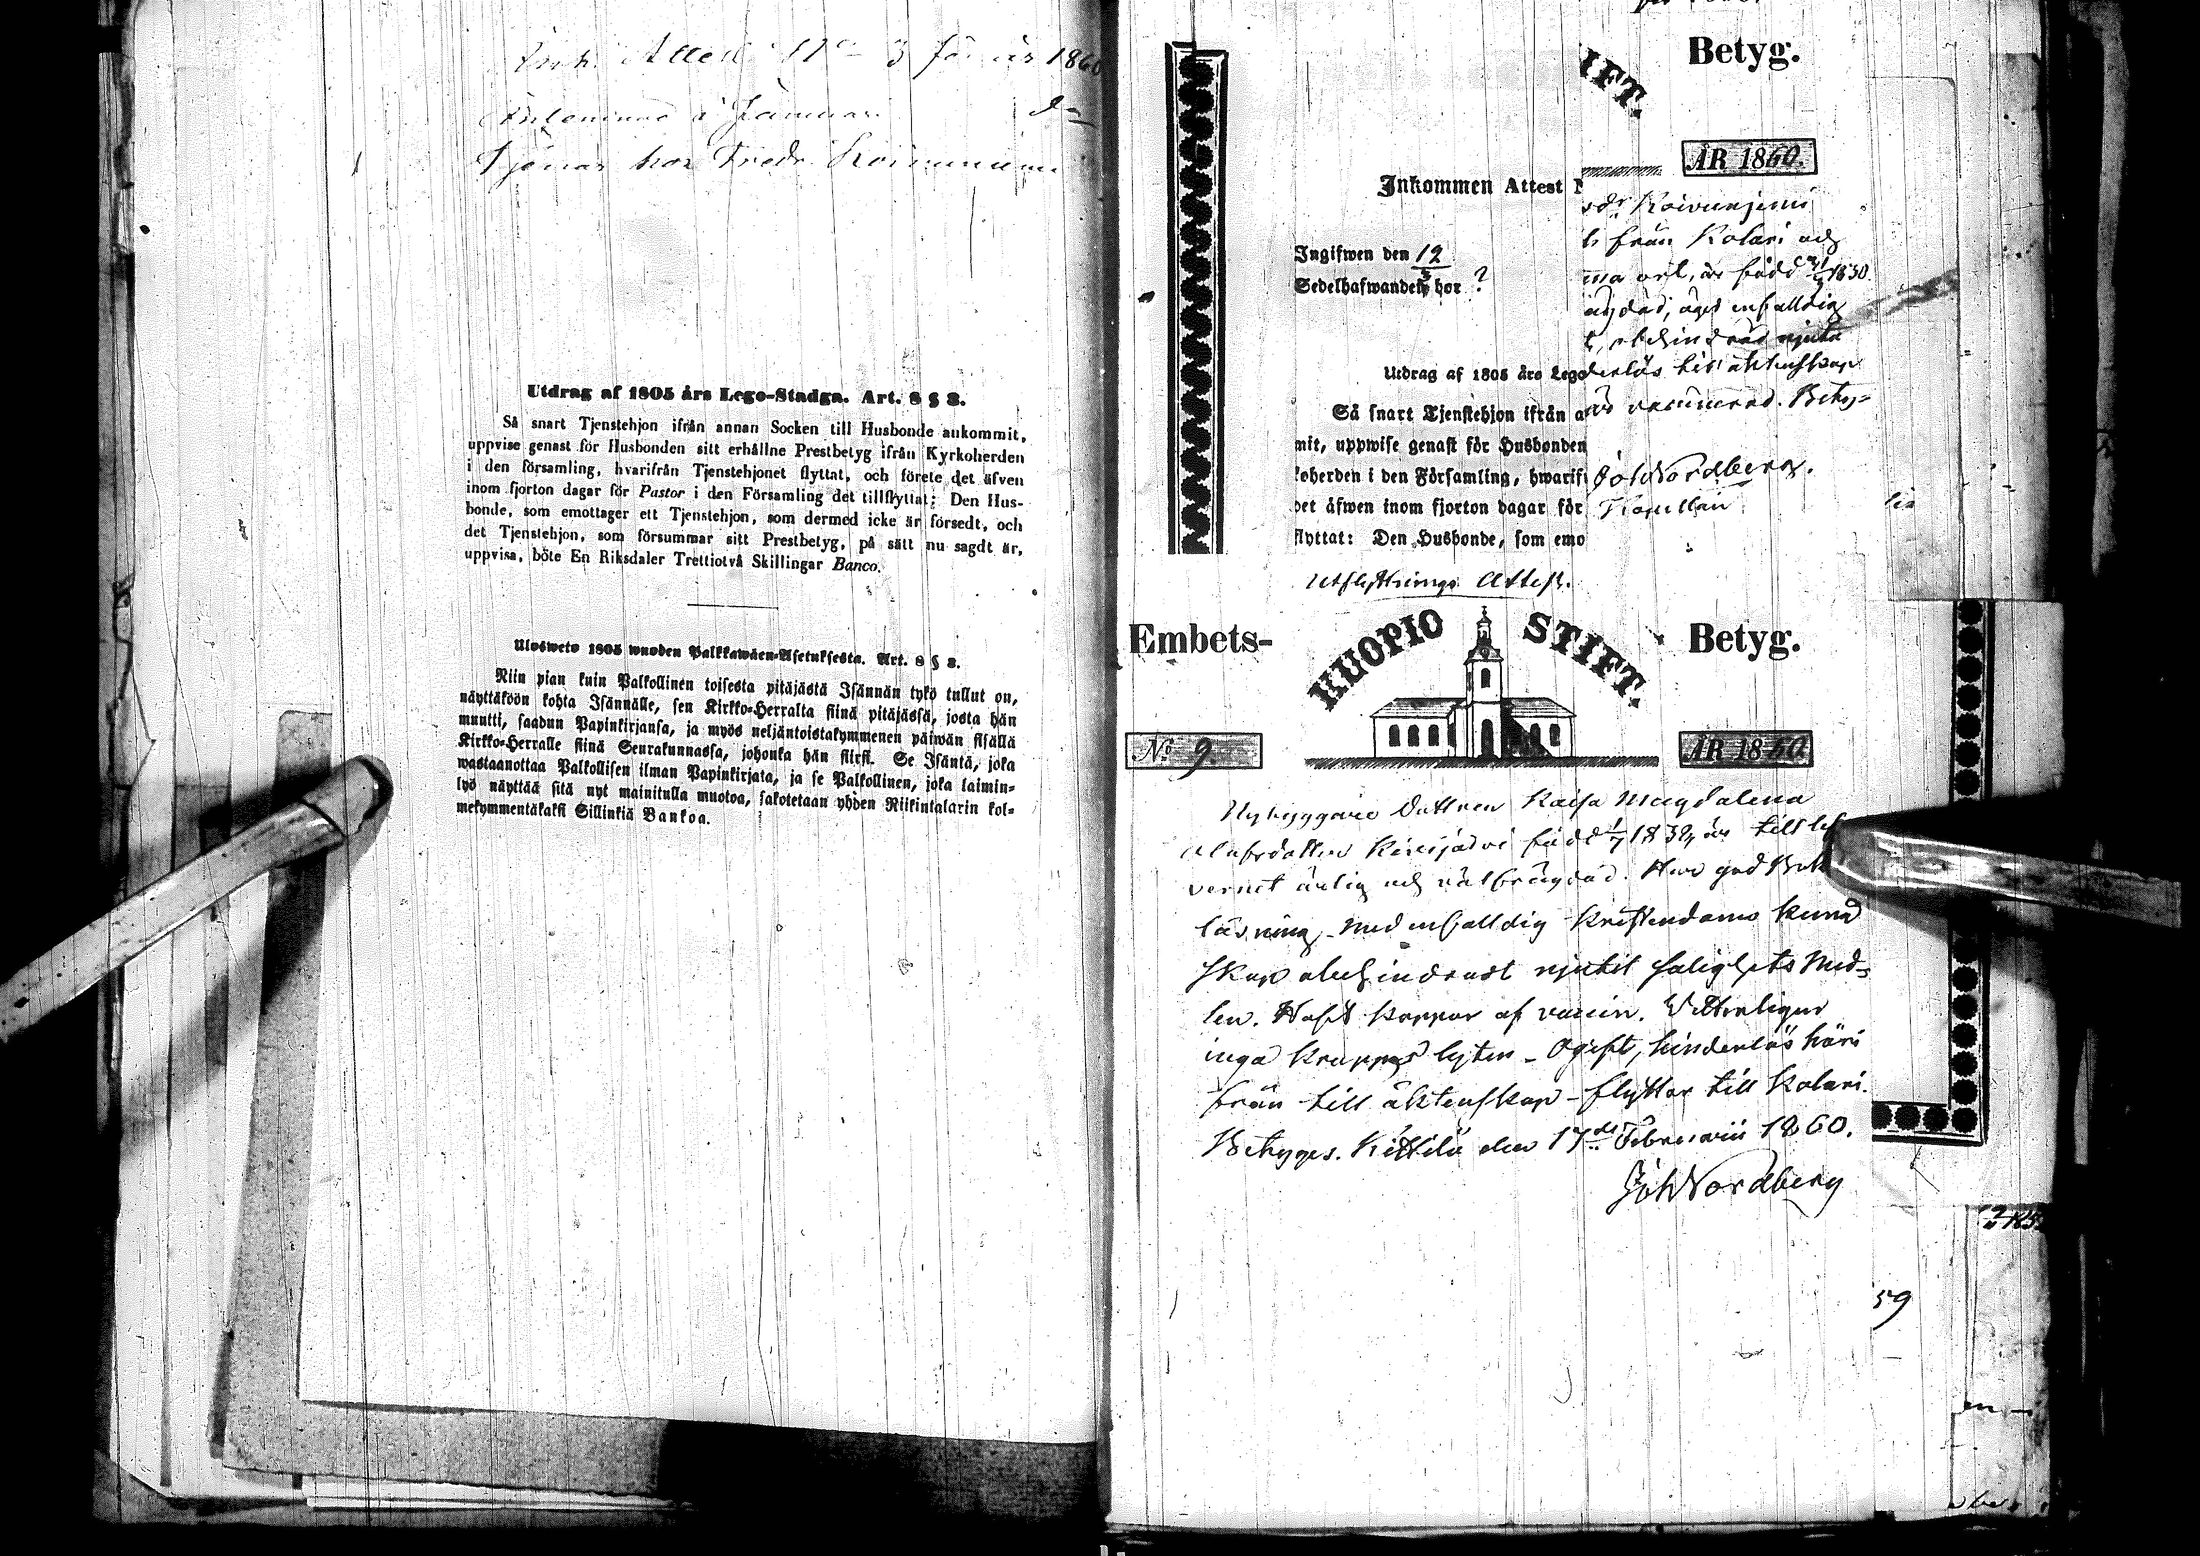 Ink. Attest No 3 för år 1860
Inlemnad i Januari dn
Tjenar hos Fredr.
Utdrag af 1805 års Lego-Stadga. Art. 8 § 3.
Så snart Tjenstehjon ifrån annan Socken till Husbonde ankommit,
uppvise genast för Husbonden sitt erhållne Prestbetyg ifrån Kyrkoherden
i den församling, hvarifrån Tjenstehjonet flyttat, och förete det äfven
inom fjorton dagar för Pastor i den Församling det tillflyttat; Den Hus-
bonde, som emottager ett Tjenstehjon, som dermed icke är försedt, och
det Tjenstehjon, som försummar sitt Prestbetyg, på sätt nu sagdt är,
uppvisa, böte En Riksdaler Trettiotvå Skillingar Banco.
Ulosweto 1805 wuoden Palkkawäen-Asetuksesta. Art. 8 § 3.
Niin pian kuin Palkollinen toisesta pitäjästä Isännän tykö tullut on,
näyttäköön kohta Isännälle, sen Kirkko-Herralta siinä pitäjässä, josta hän
muutti, saadun Papinkirjansa, ja myös neljäntoistakymmenen päiwän sisällä
Kirkko-Herralle siinä Seurakunnassa, johonka hän siirsi. Se Isäntä, joka
wastaanottaa Palkollisen ilman Papinkirjata, ja se Palkollinen, joka laimin-
lyö näyttää sitä nyt mainitulla muotoa, sakotetaan yhden Riikintalarin kol-
mekymmentäkaksi Sillinkiä Bankoa.
Betyg.
IFT.
ÅR 1860.
Inkommen Attest N
Ingifwen den 12/3
Sedelhafwanden hor ?
Koivuniemi
från Kolari och
ma ort, är född 1830
ägdad, äger enfalldig
obehindrad njuta
derlös till äktenskap
är vaccinerad. Bety-
Utdrag af 1805 års Lego
Så snart Tjenstehjon ifrån a
mit, uppwise genast för Husbonden
koherden i den Församling, hwarif
det äfwen inom fjorton dagar för
flyttat: Den Husbonde, som emo
Joh Nordberg.
Kapellan
Utflyttnings Attest.
Embets- KUOPIO STIFT. Betyg.
No 9. ÅR 1860.
Nybyggare Dottren Kaisa Magdalena
Olofsdotter född 1/7 1832, är till lef
vernet ärlig och välfrägdad. Har god Bok
läsning med enfalldig Kristendoms kund
skap obehindradt njutit salighets Med-
len. Haft koppor af vaccin. Vetterligen
inga kropps lyten - Ogift, hinderlös häri
från till äktenskap - flyttar till Kolari.
Betyges. Kittilä den 17de Februarii 1860.
Joh Nordberg
59